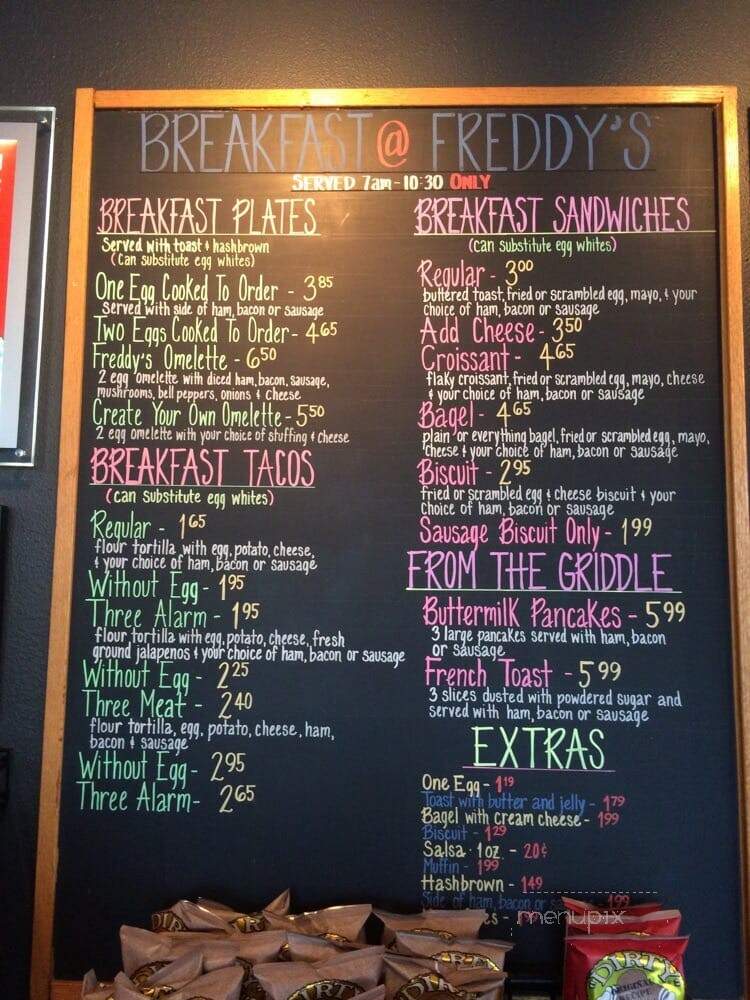 BREAKFAST @ FREDDY'S
SERVED 7am - 10:30 ONLY
BREAKFAST PLATES
Served with toast & hashbrown
(can substitute egg whites)
One Egg Cooked To Order - 3.85
Served with side of ham, bacon or sausage
Two Eggs Cooked To Order - 4.65
Freddy's Omelette - 6.50
2 egg omelette with diced ham, bacon, sausage,
mushrooms, bell peppers, onions & cheese
Create Your Own Omelette - 5.50
2 egg omelette with your choice of stuffing & cheese
BREAKFAST TACOS
(can substitute egg whites)
Regular - 1.65
flour tortilla with egg, potato, cheese,
& your choice of ham, bacon or sausage
Without Egg - 1.95
Three Alarm - 1.95
flour tortilla with egg, potato, cheese, fresh
ground jalapenos & your choice of ham, bacon or sausage
Without Egg - 2.25
Three Meat - 2.40
flour tortilla, egg, potato, cheese, ham,
bacon & sausage
Without Egg - 2.95
Three Alarm - 2.65
BREAKFAST SANDWICHES
(can substitute egg whites)
Regular - 3.00
buttered toast, fried or scrambled egg, mayo, & your
choice of ham, bacon or sausage
Add Cheese - 3.50
Croissant - 4.65
flaky croissant, fried or scrambled egg, mayo, cheese
& your choice of ham, bacon or sausage
Bagel - 4.65
plain or everything bagel, fried or scrambled egg, mayo,
cheese & your choice of ham, bacon or sausage
Biscuit - 2.95
fried or scrambled egg & cheese biscuit & your
choice of ham, bacon or sausage
Sausage Biscuit Only - 1.99
FROM THE GRIDDLE
Buttermilk Pancakes - 5.99
3 large pancakes served with ham, bacon
or sausage
French Toast - 5.99
3 slices dusted with powdered sugar and
served with ham, bacon or sausage
EXTRAS
One Egg - 1.19
Toast with butter and jelly - 1.79
Bagel with cream cheese - 1.99
Biscuit - 1.29
Salsa · 1oz. - 20¢
Muffin - 1.99
Hashbrown - 1.49
Side of ham, bacon or - 1.99
menupix
DIRTY
DIRTY
DIRTY
DIRTY
DIRTY
DIRTY
ORIGINAL